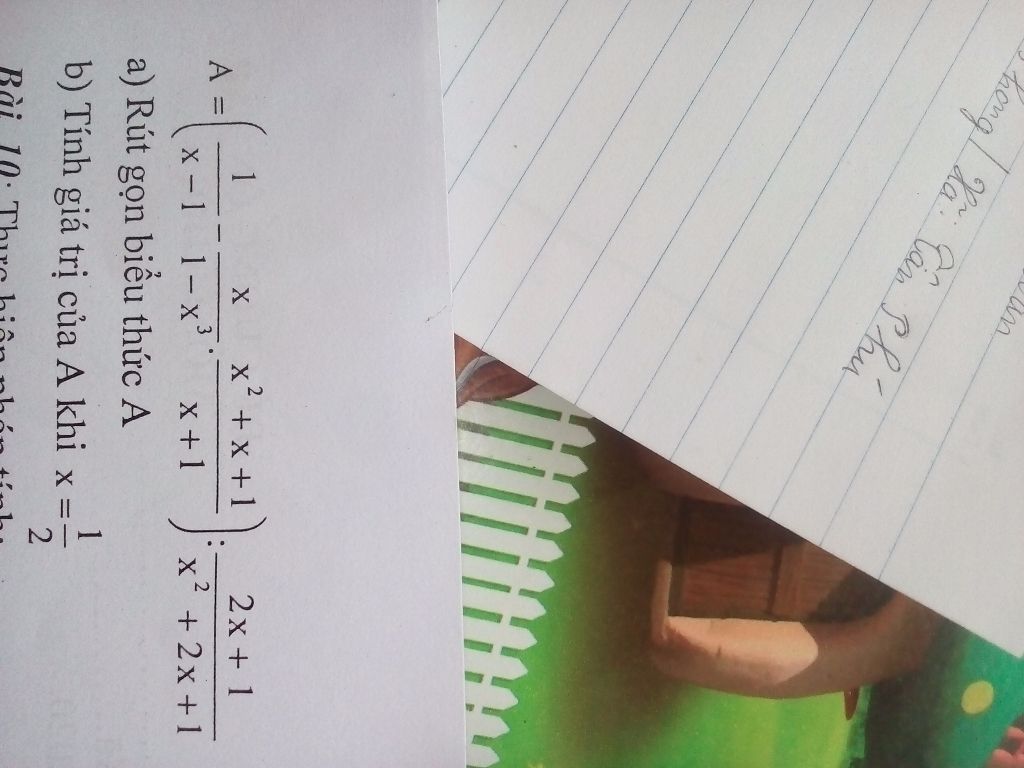 A = ( 1/(x − 1) − x/(1 − x³) . (x² + x + 1)/(x + 1) ) : (2x + 1)/(x² + 2x + 1)
a) Rút gọn biểu thức A
b) Tính giá trị của A khi x = 1/2
Bài 10: Thực hiện phép tính:
Tân Phú